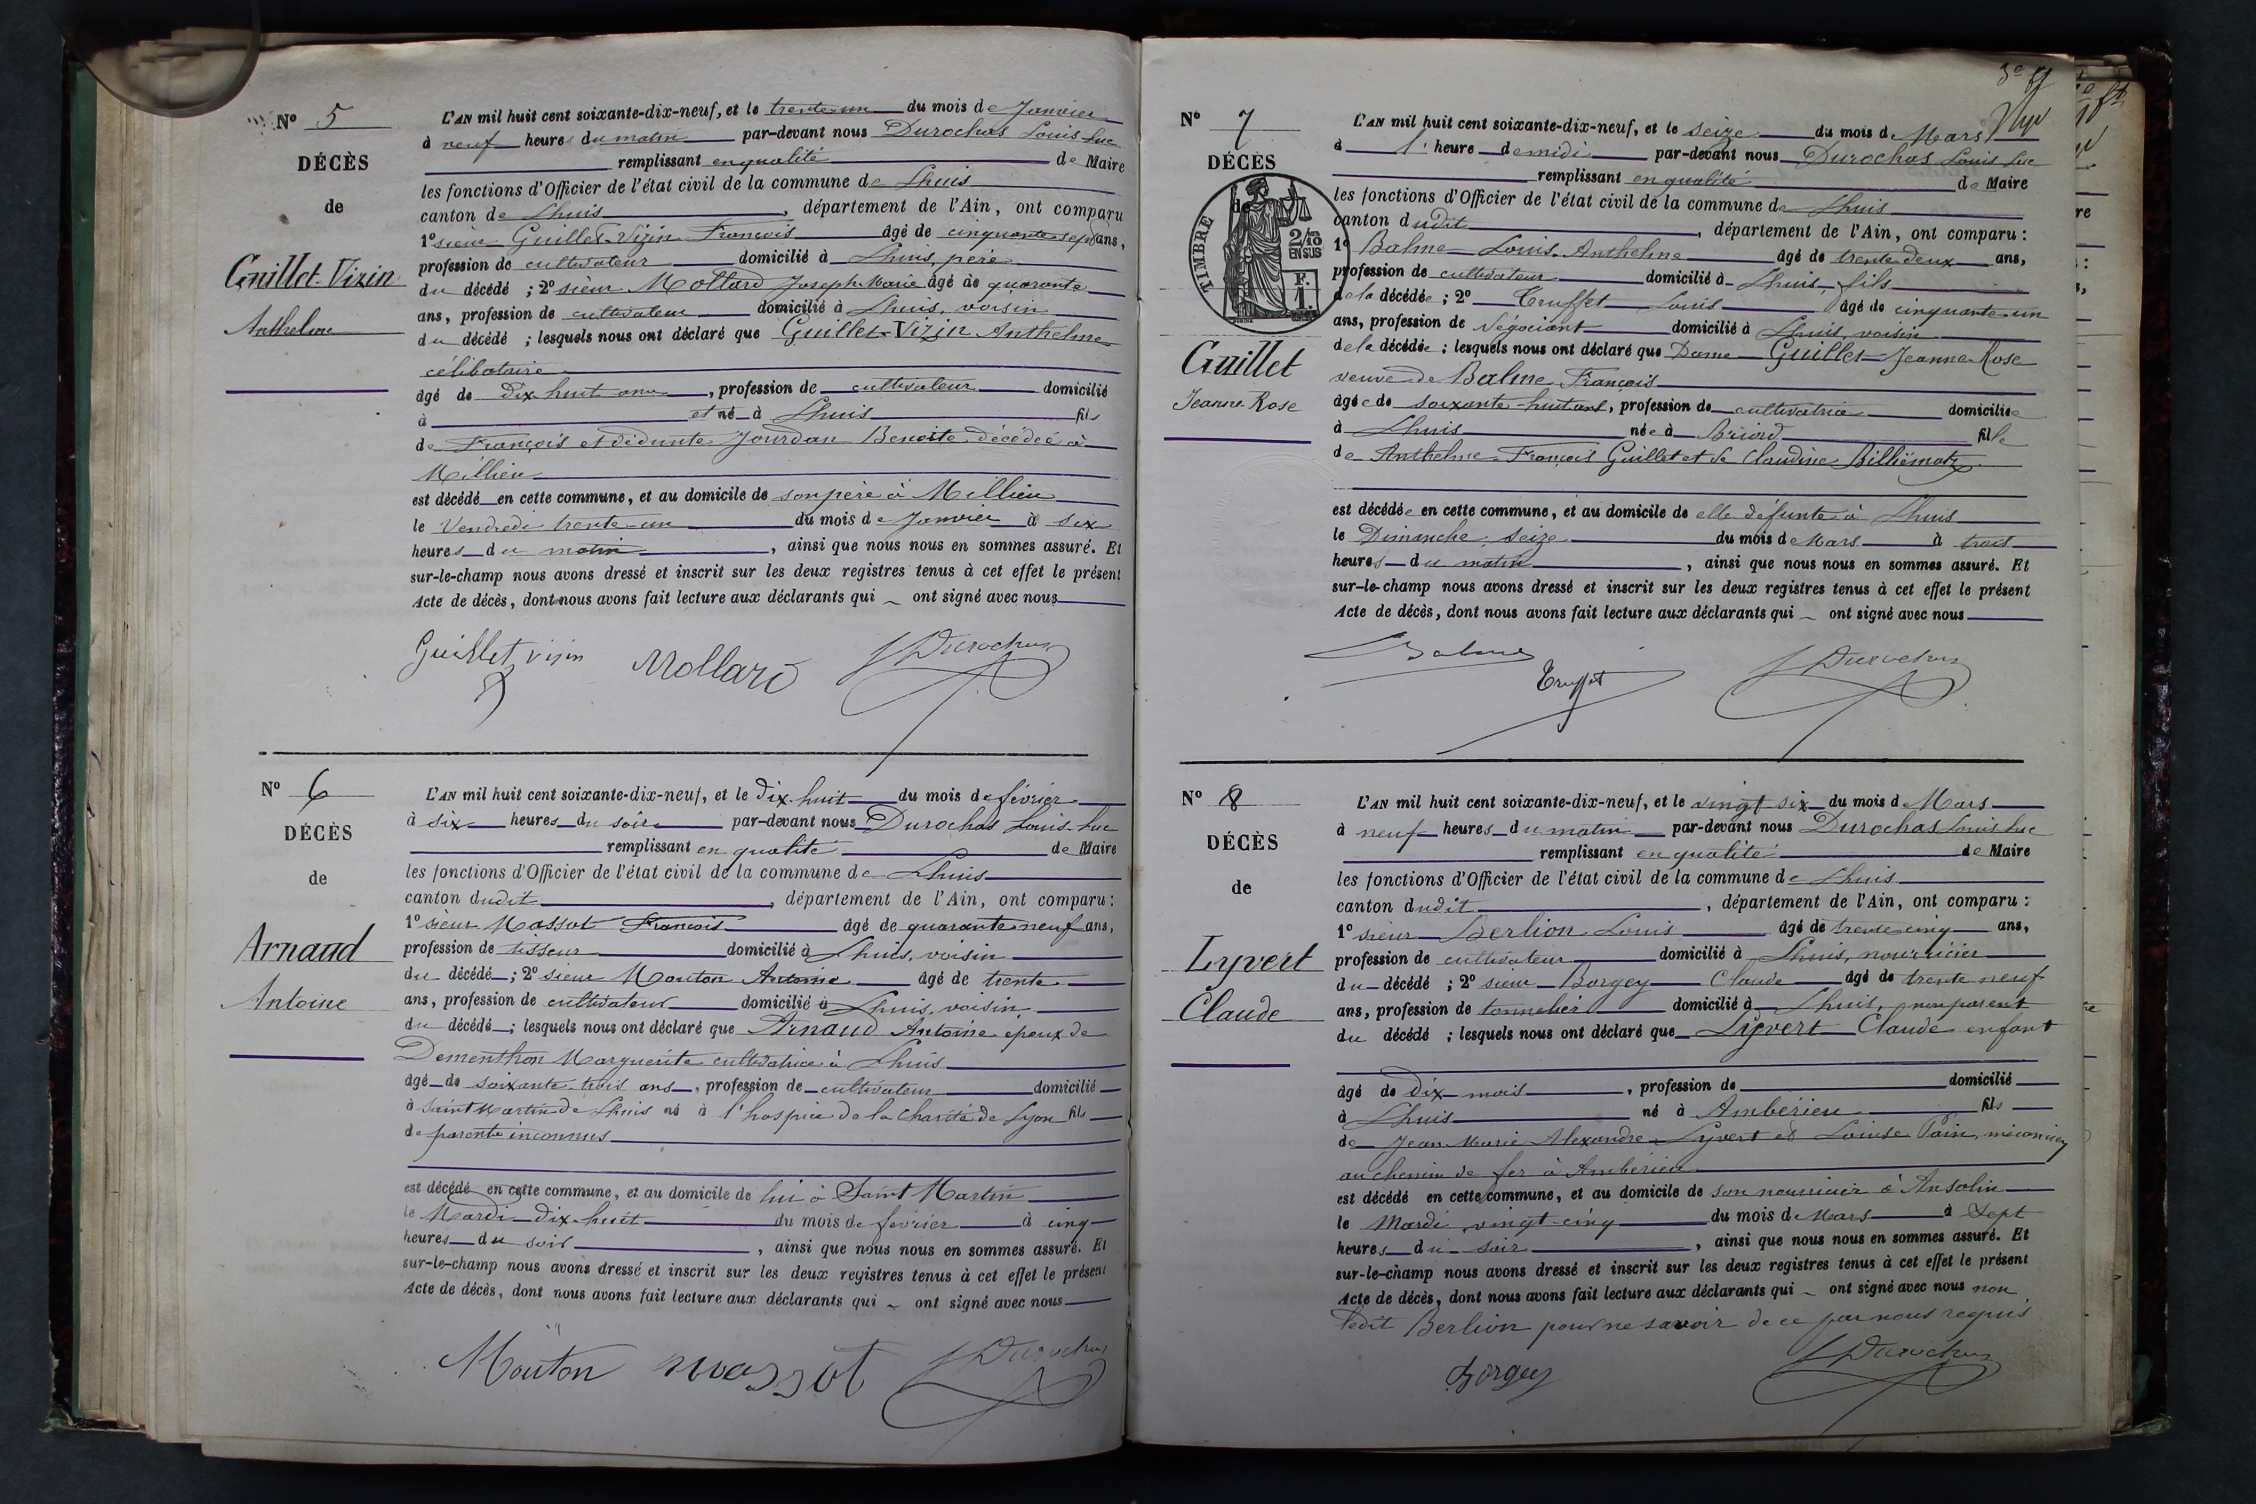 Nº 5
DÉCÈS
de
Guillet-Vizin
Anthelme
L'AN mil huit cent soixante-dix-neuf, et le trente-un du mois de Janvier
à neuf heures du matin par-devant nous Durochas Louis Luc
remplissant en qualité de Maire
les fonctions d'Officier de l'état civil de la commune de Lhuis
canton de Lhuis, département de l'Ain, ont comparu
1º sieur Guillet-Vizin François âgé de cinquante sept ans,
profession de cultivateur domicilié à Lhuis, père
du décédé ; 2º sieur Mollard Joseph-Marie âgé de quarante
ans, profession de cultivateur domicilié à Lhuis, voisin
du décédé ; lesquels nous ont déclaré que Guillet-Vizin Anthelme
célibataire
âgé de Dix huit ans, profession de cultivateur domicilié
à et né à Lhuis fils
de François et défunte Jourdan Benoite décédée à
Millieu
est décédé en cette commune, et au domicile de son père à Millieu
le Vendredi trente-un du mois de Janvier à six
heures du matin, ainsi que nous nous en sommes assuré. Et
sur-le-champ nous avons dressé et inscrit sur les deux registres tenus à cet effet le présent
Acte de décès, dont nous avons fait lecture aux déclarants qui ~ ont signé avec nous
Guillet vizin Mollard Durochas
Nº 6
DÉCÈS
de
Arnaud
Antoine
L'AN mil huit cent soixante-dix-neuf, et le Dix-huit du mois de février
à six heures du soir par-devant nous Durochas Louis-Luc
remplissant en qualité de Maire
les fonctions d'Officier de l'état civil de la commune de Lhuis
canton dudit, département de l'Ain, ont comparu :
1º sieur Massot François âgé de quarante neuf ans,
profession de tisseur domicilié à Lhuis, voisin
du décédé ; 2º sieur Mouton Antoine âgé de trente
ans, profession de cultivateur domicilié à Lhuis, voisin
du décédé ; lesquels nous ont déclaré que Arnaud Antoine époux de
Dementhon Marguerite cultivatrice à Lhuis
âgé de soixante-trois ans, profession de cultivateur domicilié
à Saint Martin de Lhuis né à l'hospice de la Charité de Lyon fils
de parents inconnus
est décédé en cette commune, et au domicile de lui à Saint Martin
le Mardi Dix-huit du mois de février à cinq
heures du soir, ainsi que nous nous en sommes assuré. Et
sur-le-champ nous avons dressé et inscrit sur les deux registres tenus à cet effet le présent
Acte de décès, dont nous avons fait lecture aux déclarants qui ~ ont signé avec nous
Mouton massot Durochas
Nº 7
DÉCÈS
de
TIMBRE
2/10
EN SUS
F.
1.
Guillet
Jeanne-Rose
L'AN mil huit cent soixante-dix-neuf, et le Seize du mois de Mars
à 1 heure de midi par-devant nous Durochas Louis Luc
remplissant en qualité de Maire
les fonctions d'Officier de l'état civil de la commune de Lhuis
canton dudit, département de l'Ain, ont comparu :
1º Balme Louis-Anthelme âgé de trente-deux ans,
profession de cultivateur domicilié à Lhuis, fils
de la décédée ; 2º Truffet Louis âgé de cinquante-un
ans, profession de Négociant domicilié à Lhuis voisin
de la décédée ; lesquels nous ont déclaré que Dame Guillet Jeanne-Rose
veuve de Balme François
âgée de soixante-huit ans, profession de cultivatrice domiciliée
à Lhuis née à Briord fille
de Anthelme-François Guillet et de Claudine Billiématz
est décédée en cette commune, et au domicile de elle défunte à Lhuis
le Dimanche seize du mois de Mars à trois
heures du matin, ainsi que nous nous en sommes assuré. Et
sur-le-champ nous avons dressé et inscrit sur les deux registres tenus à cet effet le présent
Acte de décès, dont nous avons fait lecture aux déclarants qui ~ ont signé avec nous
Balme
Truffet Durochas
Nº 8
DÉCÈS
de
Lyvert
Claude
L'AN mil huit cent soixante-dix-neuf, et le vingt six du mois de Mars
à neuf heures du matin par-devant nous Durochas Louis Luc
remplissant en qualité de Maire
les fonctions d'Officier de l'état civil de la commune de Lhuis
canton dudit, département de l'Ain, ont comparu :
1º sieur Berlion Louis âgé de trente cinq ans,
profession de cultivateur domicilié à Lhuis, nourricier
du décédé ; 2º sieur Borgey Claude âgé de trente neuf
ans, profession de tonnelier domicilié à Lhuis, non parent
du décédé ; lesquels nous ont déclaré que Lyvert Claude enfant
âgé de Dix mois, profession de domicilié
à Lhuis né à Ambérieu fils
de Jean Marie Alexandre Lyvert et Louise Pain, mécanicien
au chemin de fer à Ambérieu
est décédé en cette commune, et au domicile de son nourricier à Ansolin
le Mardi vingt-cinq du mois de Mars à Sept
heures du soir, ainsi que nous nous en sommes assuré. Et
sur-le-champ nous avons dressé et inscrit sur les deux registres tenus à cet effet le présent
Acte de décès, dont nous avons fait lecture aux déclarants qui ~ ont signé avec nous non
ledit Berlion pour ne savoir de ce par nous requis
Borgey Durochas